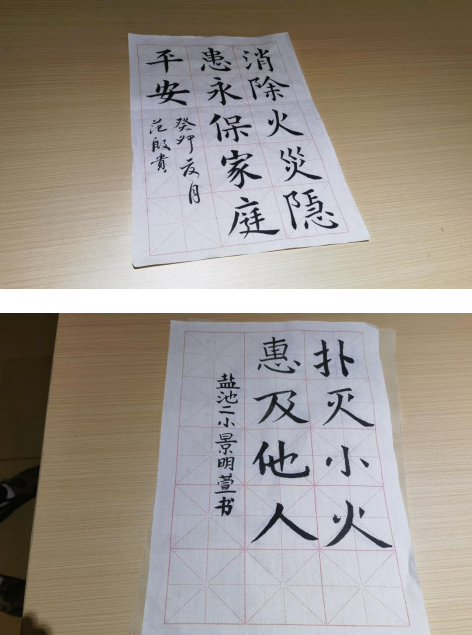 消除火災隐
患永保家庭
平安
癸卯夏月
范殷貴
扑灭小火
惠及他人
盐池二小景明萱书